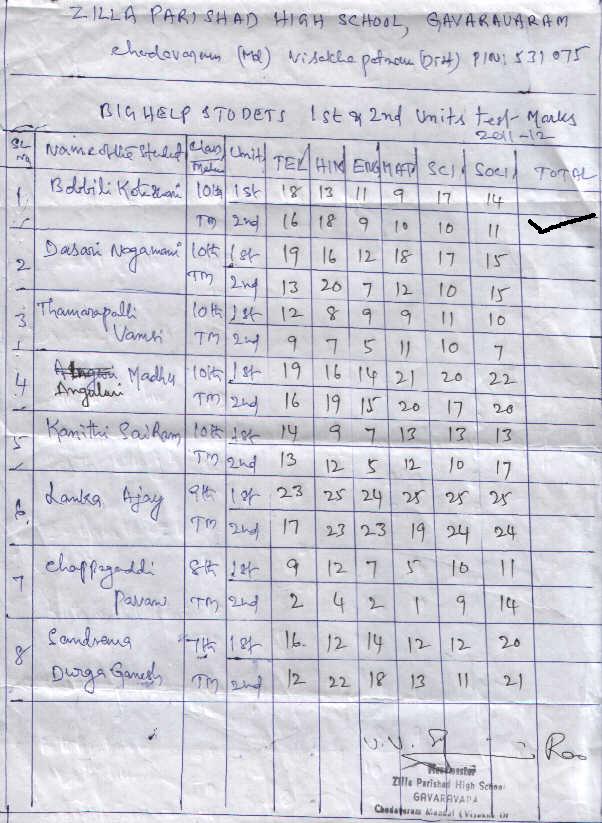 ZILLA PARISHAD HIGH SCHOOL, GAVARAVARAM
chodavaram (Md) Visakhapatnam (Dist) PIN: 531 075
BIG HELP STODETS 1st & 2nd Units test Marks
2011-12
SL No Name of the Student Class Medium Unit TEL HIN ENG MAT SCI SOCI TOTAL
1 Bobbili Koteswari 10th 1st 18 13 11 9 17 14
TM 2nd 16 18 9 10 10 11
2 Dasari Nagamani 10th 1st 19 16 12 18 17 15
TM 2nd 13 20 7 12 10 15
3 Thamarapalli 10th 1st 12 8 9 9 11 10
Vamsi TM 2nd 9 7 5 11 10 7
4 Madhu 10th 1st 19 16 14 21 20 22
TM 2nd 16 19 15 20 17 20
5 Kamithi SaiRam 10th 1st 14 9 7 13 13 13
TM 2nd 13 12 5 12 10 17
6. Lanka Ajay 9th 1st 23 25 24 25 25 25
TM 2nd 17 23 23 19 24 24
7 Chappagaddi 8th 1st 9 12 7 5 10 11
Pavani TM 2nd 2 4 2 1 9 14
8 7th 1st 16. 12 14 12 12 20
Durga Ganesh TM 2nd 12 22 18 13 11 21
V.V. Rao
Headmaster
Zilla Parishad High School
GAVARAVARA
Chodavaram Mandal